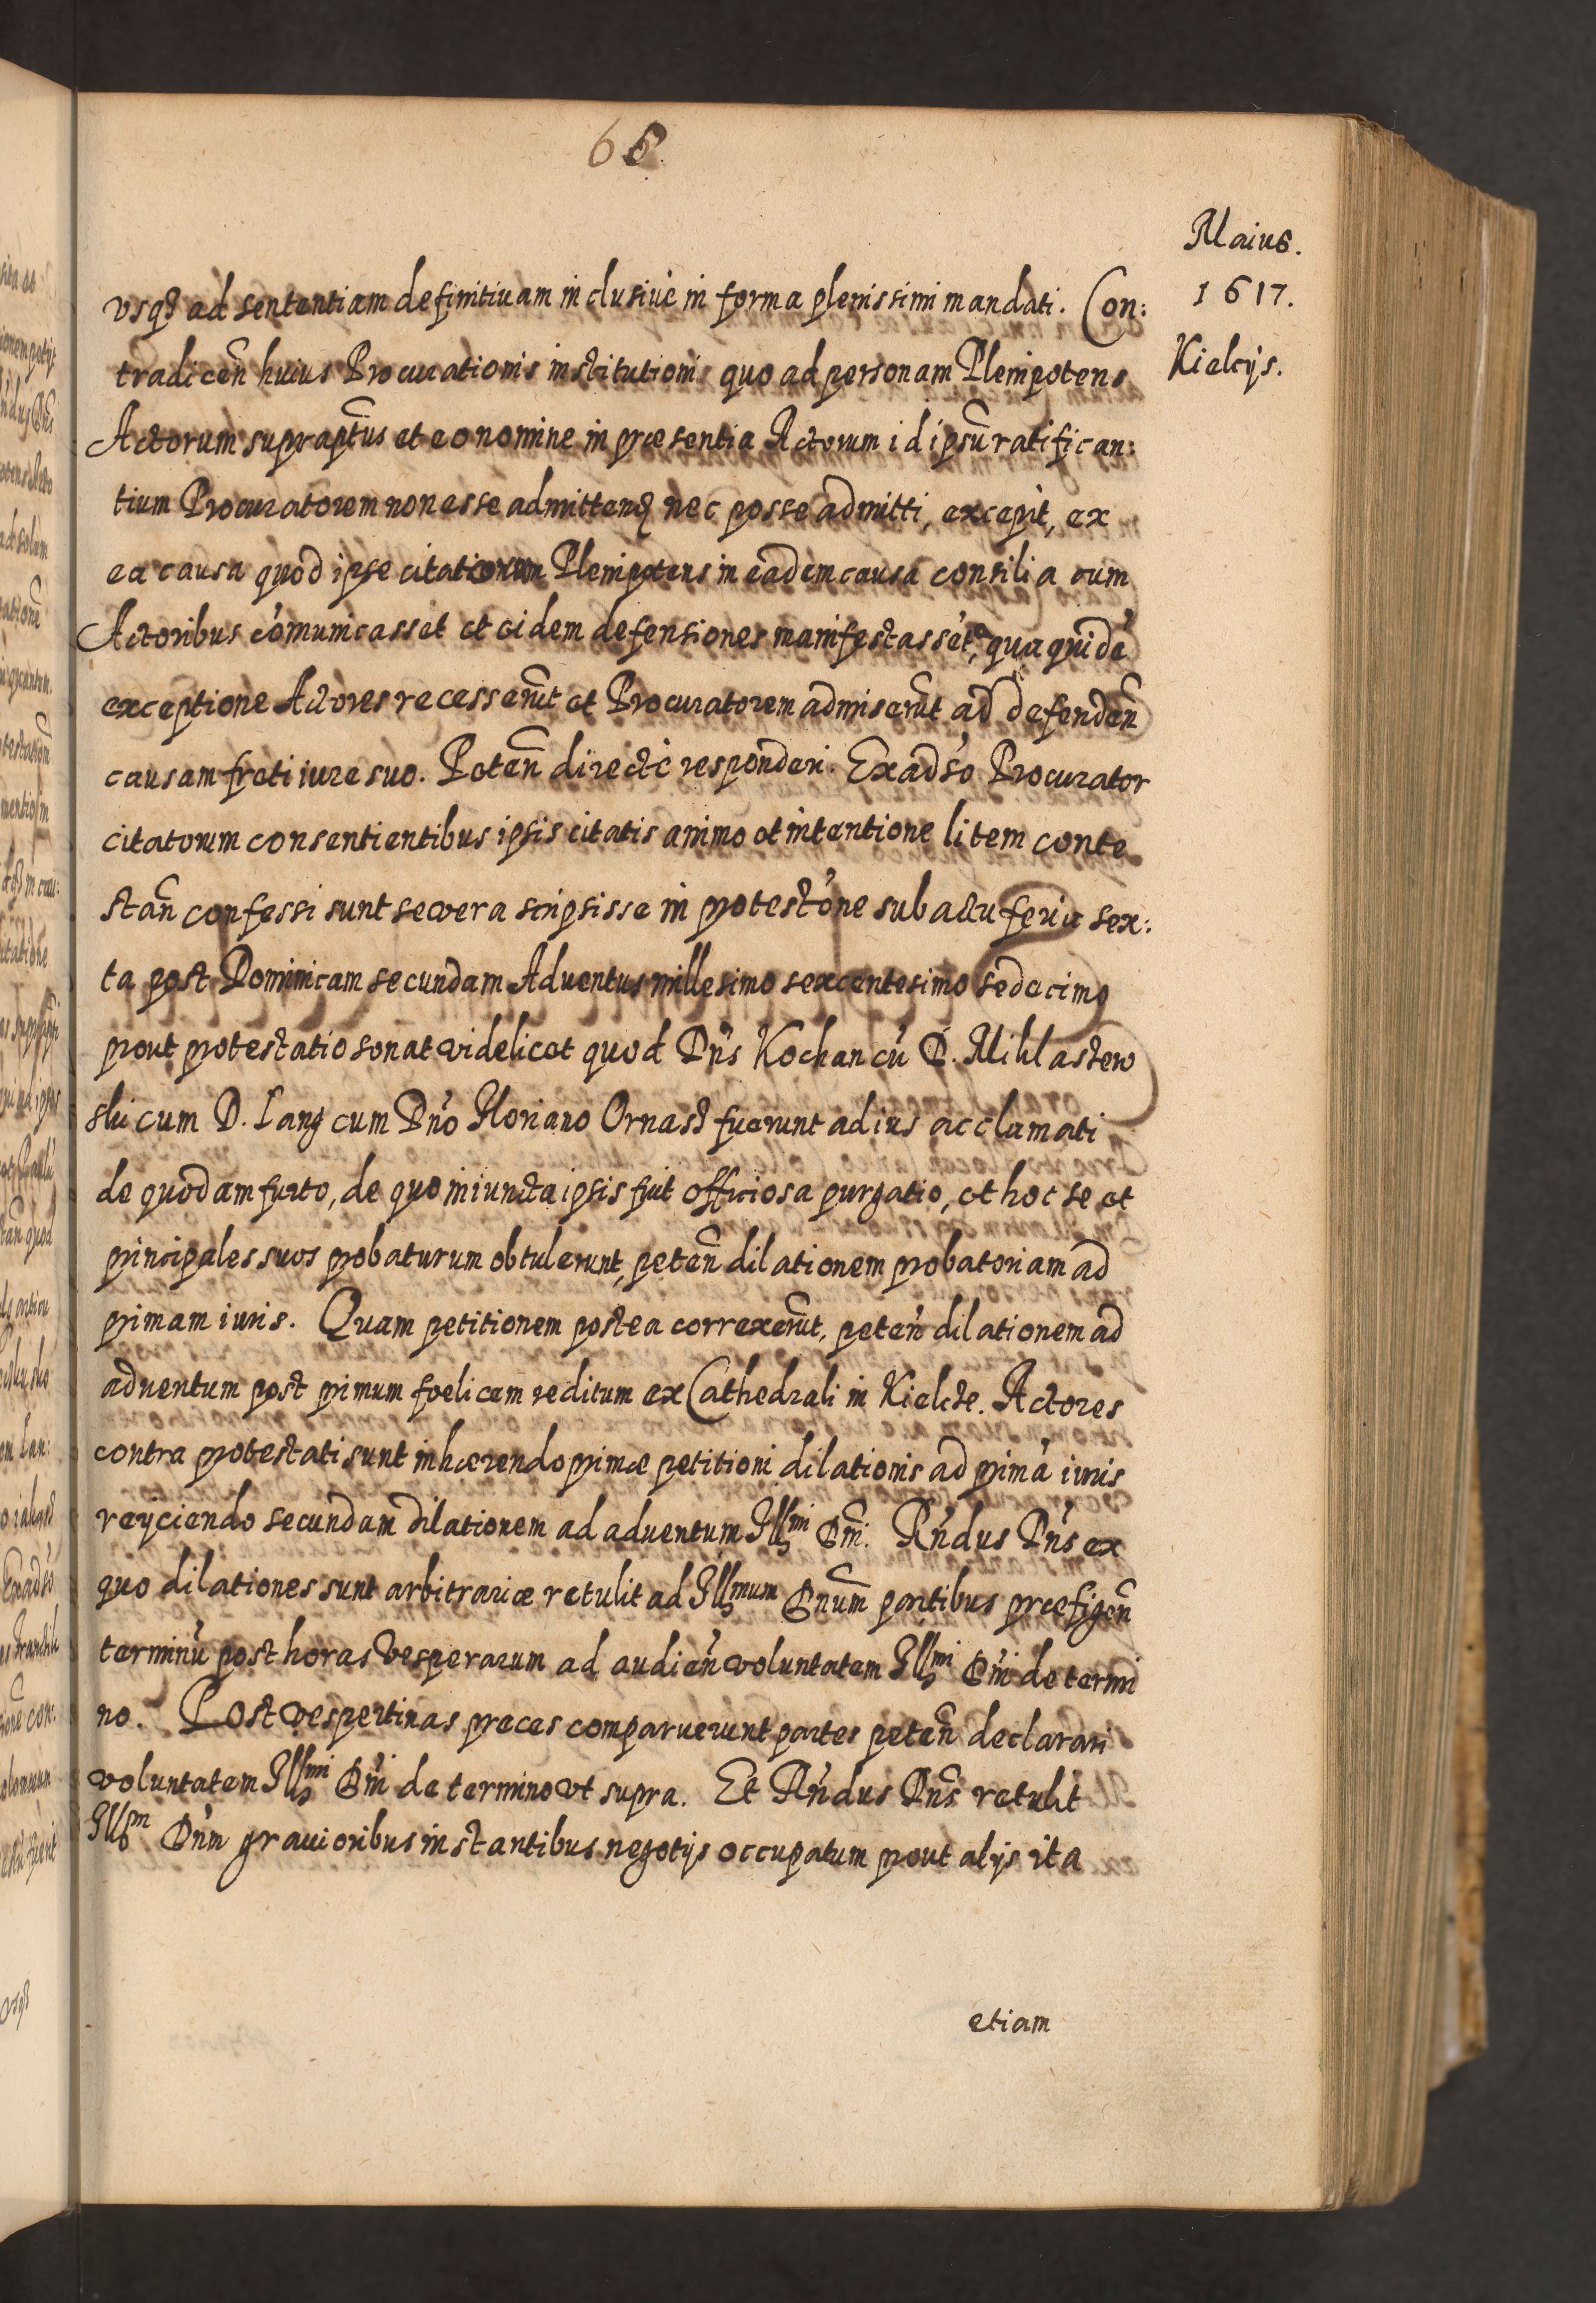 65
Maius.
1617.
Kielcijs.
vsq3 ad sententiam definitiuam inclusiue in forma plenissimi mandati. Con:
tradiceñ huius Procurationis institutioni quo ad personam Plenipotens
Actorum suprapt̃us et eo nomine in præsentia Actorum id ipsũ ratifican:
tium Procuratorem non esse admittend nec posse admitti, excepit, ex
ea causa quod ipse citatorum Plenipotens in eadem causa consilia cum
Actoribus cõmunicasset et eidem defensiones manifestasset, qua quidẽ
exceptione Actores recesserũt et Procuratorem admiserũt ad defendeñ
causam freti iure suo. Peteñ directè responderi. Exadso Procurator
citatorum consentientibus ipsis citatis animo et intentione litem conte
stañ confessi sunt se vera scripsisse in protestõne sub actu feria sex:
ta post Dominicam secundam Aduentus millesimo sexcentesimo sedecimo
prout protestatio sonat videlicet quod Dñs Kochan cũ D. Mihlastew
ski cum D. Lang cum Dño Floriano Ornast fuerunt ad ius acclamati
de quodam furto, de quo iniuncta ipsis fuit officiosa purgatio, et hoc se et
principales suos probaturum obtulerunt, peteñ dilationem probatoriam ad
primam iuris. Quam petitionem postea correxerũt, peteñ dilationem ad
aduentum post primum foelicem reditum ex Cathedrali in Kielcze. Actores
contra protestati sunt inhærendo primæ petitioni dilationis ad primã iuris
reyciendo secundam dilationem ad aduentum Illmi Dñi. Rñdus Dñs ex
quo dilationes sunt arbitrariæ retulit ad Illmum Dnũm partibus præfigeñ
terminũ post horas Vesperarum ad audieñ voluntatem Illmi Dñi de termi
no. Post vespertinas preces comparuerunt partes peteñ declarari
voluntatem Illmi Dñi de termino vt supra. Et Rñdus Dñs retulit
Illm Dñm grauioribus instantibus negotijs occupatum prout alijs ita
etiam